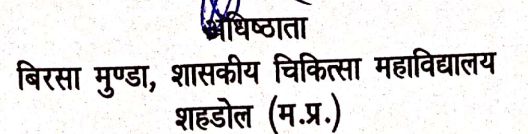 अधिष्ठाता
बिरसा मुण्डा, शासकीय चिकित्सा महाविद्यालय
शहडोल (म.प्र.)